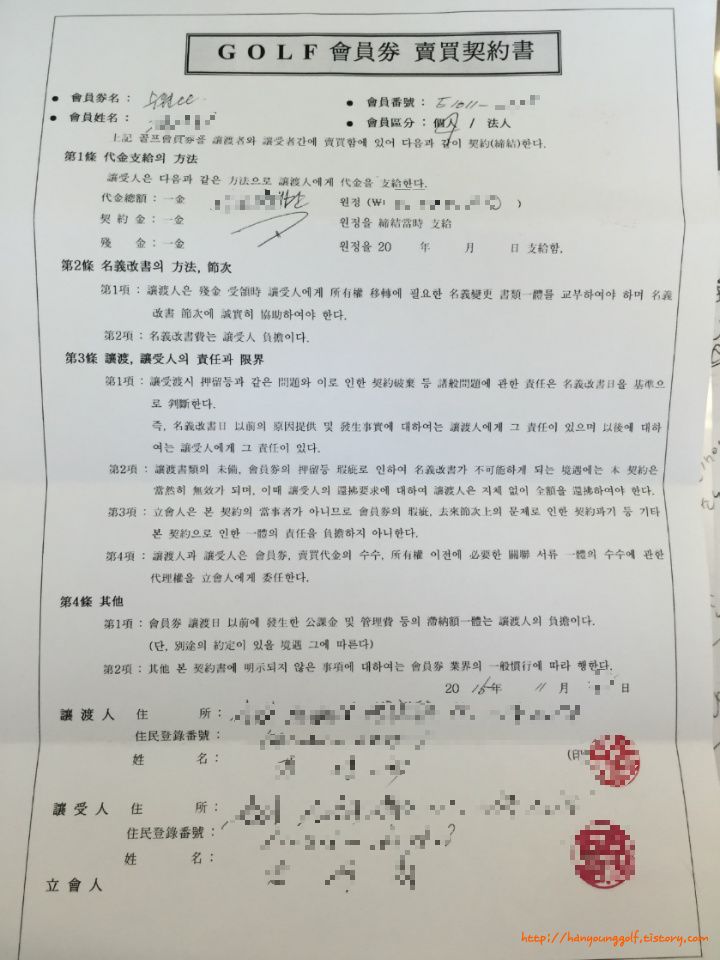 GOLF 會員券 賣買契約書
● 會員券名 :
● 會員番號 :
● 會員姓名 :
● 會員區分 : 個人 / 法人
上記 골프會員券을 讓渡者와 讓受者간에 賣買함에 있어 다음과 같이 契約(締結)한다.
第1條 代金支給의 方法
讓受人은 다음과 같은 方法으로 讓渡人에게 代金을 支給한다.
代金總額 : 一金 원정 (₩ )
契約金 : 一金 원정을 締結當時 支給
殘金 : 一金 원정을 20 年 月 日 支給함.
第2條 名義改書의 方法, 節次
第1項 : 讓渡人은 殘金 受領時 讓受人에게 所有權 移轉에 필요한 名義變更 書類一體를 교부하여야 하며 名義
改書 節次에 誠實히 協助하여야 한다.
第2項 : 名義改書費는 讓受人 負擔이다.
第3條 讓渡, 讓受人의 責任과 限界
第1項 : 讓受渡시 押留등과 같은 問題와 이로 인한 契約破棄 등 諸般問題에 관한 責任은 名義改書日을 基準으
로 判斷한다.
즉, 名義改書日 以前의 原因提供 및 發生事實에 대하여는 讓渡人에게 그 責任이 있으며 以後에 대하
여는 讓受人에게 그 責任이 있다.
第2項 : 讓渡書類의 未備, 會員券의 押留등 瑕疵로 인하여 名義改書가 不可能하게 되는 境遇에는 本 契約은
當然히 無效가 되며, 이때 讓受人의 還拂要求에 대하여 讓渡人은 지체 없이 全額을 還拂하여야 한다.
第3項 : 立會人은 본 契約의 當事者가 아니므로 會員券의 瑕疵, 去來節次上의 문제로 인한 契約과기 등 기타
본 契約으로 인한 一體의 責任을 負擔하지 아니한다.
第4項 : 讓渡人과 讓受人은 會員券, 賣買代金의 수수, 所有權 이전에 必要한 關聯 서류 一體의 수수에 관한
代理權을 立會人에게 委任한다.
第4條 其他
第1項 : 會員券 讓渡日 以前에 發生한 公課金 및 管理費 등의 滯納額一體는 讓渡人의 負擔이다.
(단, 別途의 約定이 있을 境遇 그에 따른다)
第2項 : 其他 본 契約書에 明示되지 않은 事項에 대하여는 會員券 業界의 一般慣行에 따라 행한다.
20 年 11 月 日
讓渡人 住 所 :
住民登錄番號 :
姓 名 :
(印
讓受人 住 所 :
住民登錄番號 :
姓 名 :
立會人
http://hanyounggolf.tistory.com